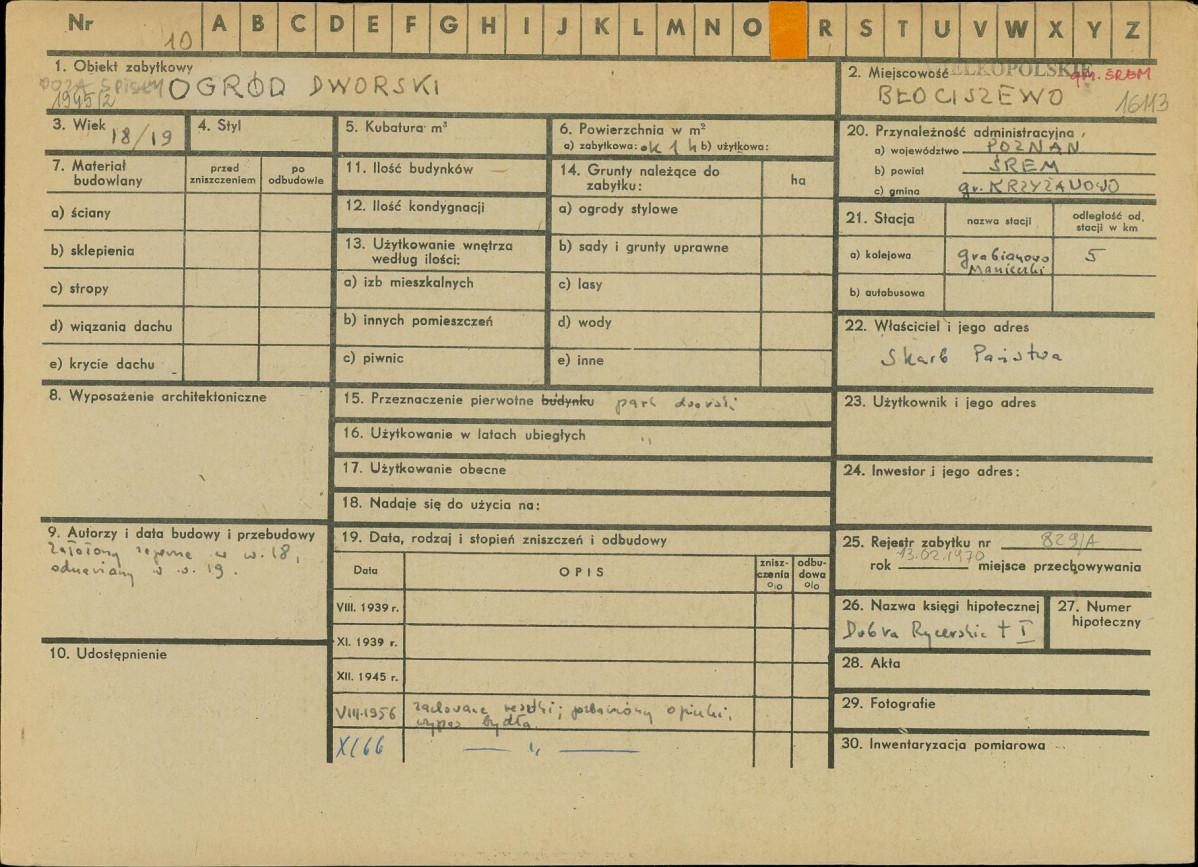 Nr 10 A B C D E F G H I J K L M N O R S T U V W X Y Z
1. Obiekt zabytkowy
POZA SPISEM
1945/2
OGRÓD DWORSKI
2. Miejscowość
WIELKOPOLSKIE
gm. ŚREM
BŁOCISZEWO
16113
3. Wiek 18/19
4. Styl
5. Kubatura m³
6. Powierzchnia w m²
a) zabytkowa: ok 1 h b) użytkowa:
20. Przynależność administracyjna
a) województwo POZNAŃ
b) powiat ŚREM
c) gmina gr. KRZYŻANOWO
7. Materiał budowlany
przed zniszczeniem
po odbudowie
a) ściany
b) sklepienia
c) stropy
d) wiązania dachu
e) krycie dachu
11. Ilość budynków
12. Ilość kondygnacji
13. Użytkowanie wnętrza
według ilości:
a) izb mieszkalnych
b) innych pomieszczeń
c) piwnic
14. Grunty należące do
zabytku:
ha
a) ogrody stylowe
b) sady i grunty uprawne
c) lasy
d) wody
e) inne
21. Stacja
nazwa stacji
odległość od.
stacji w km
a) kolejowa
Grabianowo
Manieczki
5
b) autobusowa
22. Właściciel i jego adres
Skarb Państwa
8. Wyposażenie architektoniczne
15. Przeznaczenie pierwotne budynku park dworski
16. Użytkowanie w latach ubiegłych "
17. Użytkowanie obecne
18. Nadaje się do użycia na:
23. Użytkownik i jego adres
24. Inwestor i jego adres:
9. Autorzy i data budowy i przebudowy
założony zapewne w w. 18,
odnawiany w w. 19.
10. Udostępnienie
19. Data, rodzaj i stopień zniszczeń i odbudowy
Data
OPIS
znisz-
czenia
%
odbu-
dowa
%
VIII. 1939 r.
XI. 1939 r.
XII. 1945 r.
VIII.1956 zachowane resztki; pozbawiony opieki,
wypas bydła.
XI 66 — " —
25. Rejestr zabytku nr 829/A
13.02.1970
rok miejsce przechowywania
26. Nazwa księgi hipotecznej
Dobra Rycerskie t I
27. Numer
hipoteczny
28. Akta
29. Fotografie
30. Inwentaryzacja pomiarowa